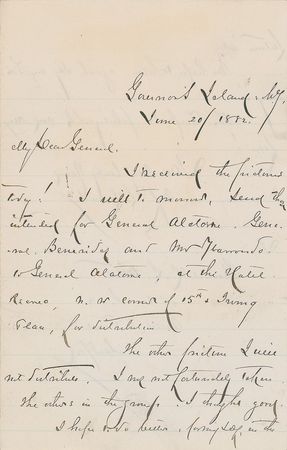 Governor's Island, NY.
June 20/1882.
My Dear General.
I received the pictures
today! I will to-morrow, send those
intended for General Alatorre. Gene-
ral Benavides and Mr
to General Alatorre, at the Hotel
N. W. corner of 15th & Irving
Place, for distribution
The other pictures I will
not distribute. I was not fortunately taken
the others in the group. I thought good.
I hope to do better, some day, in the